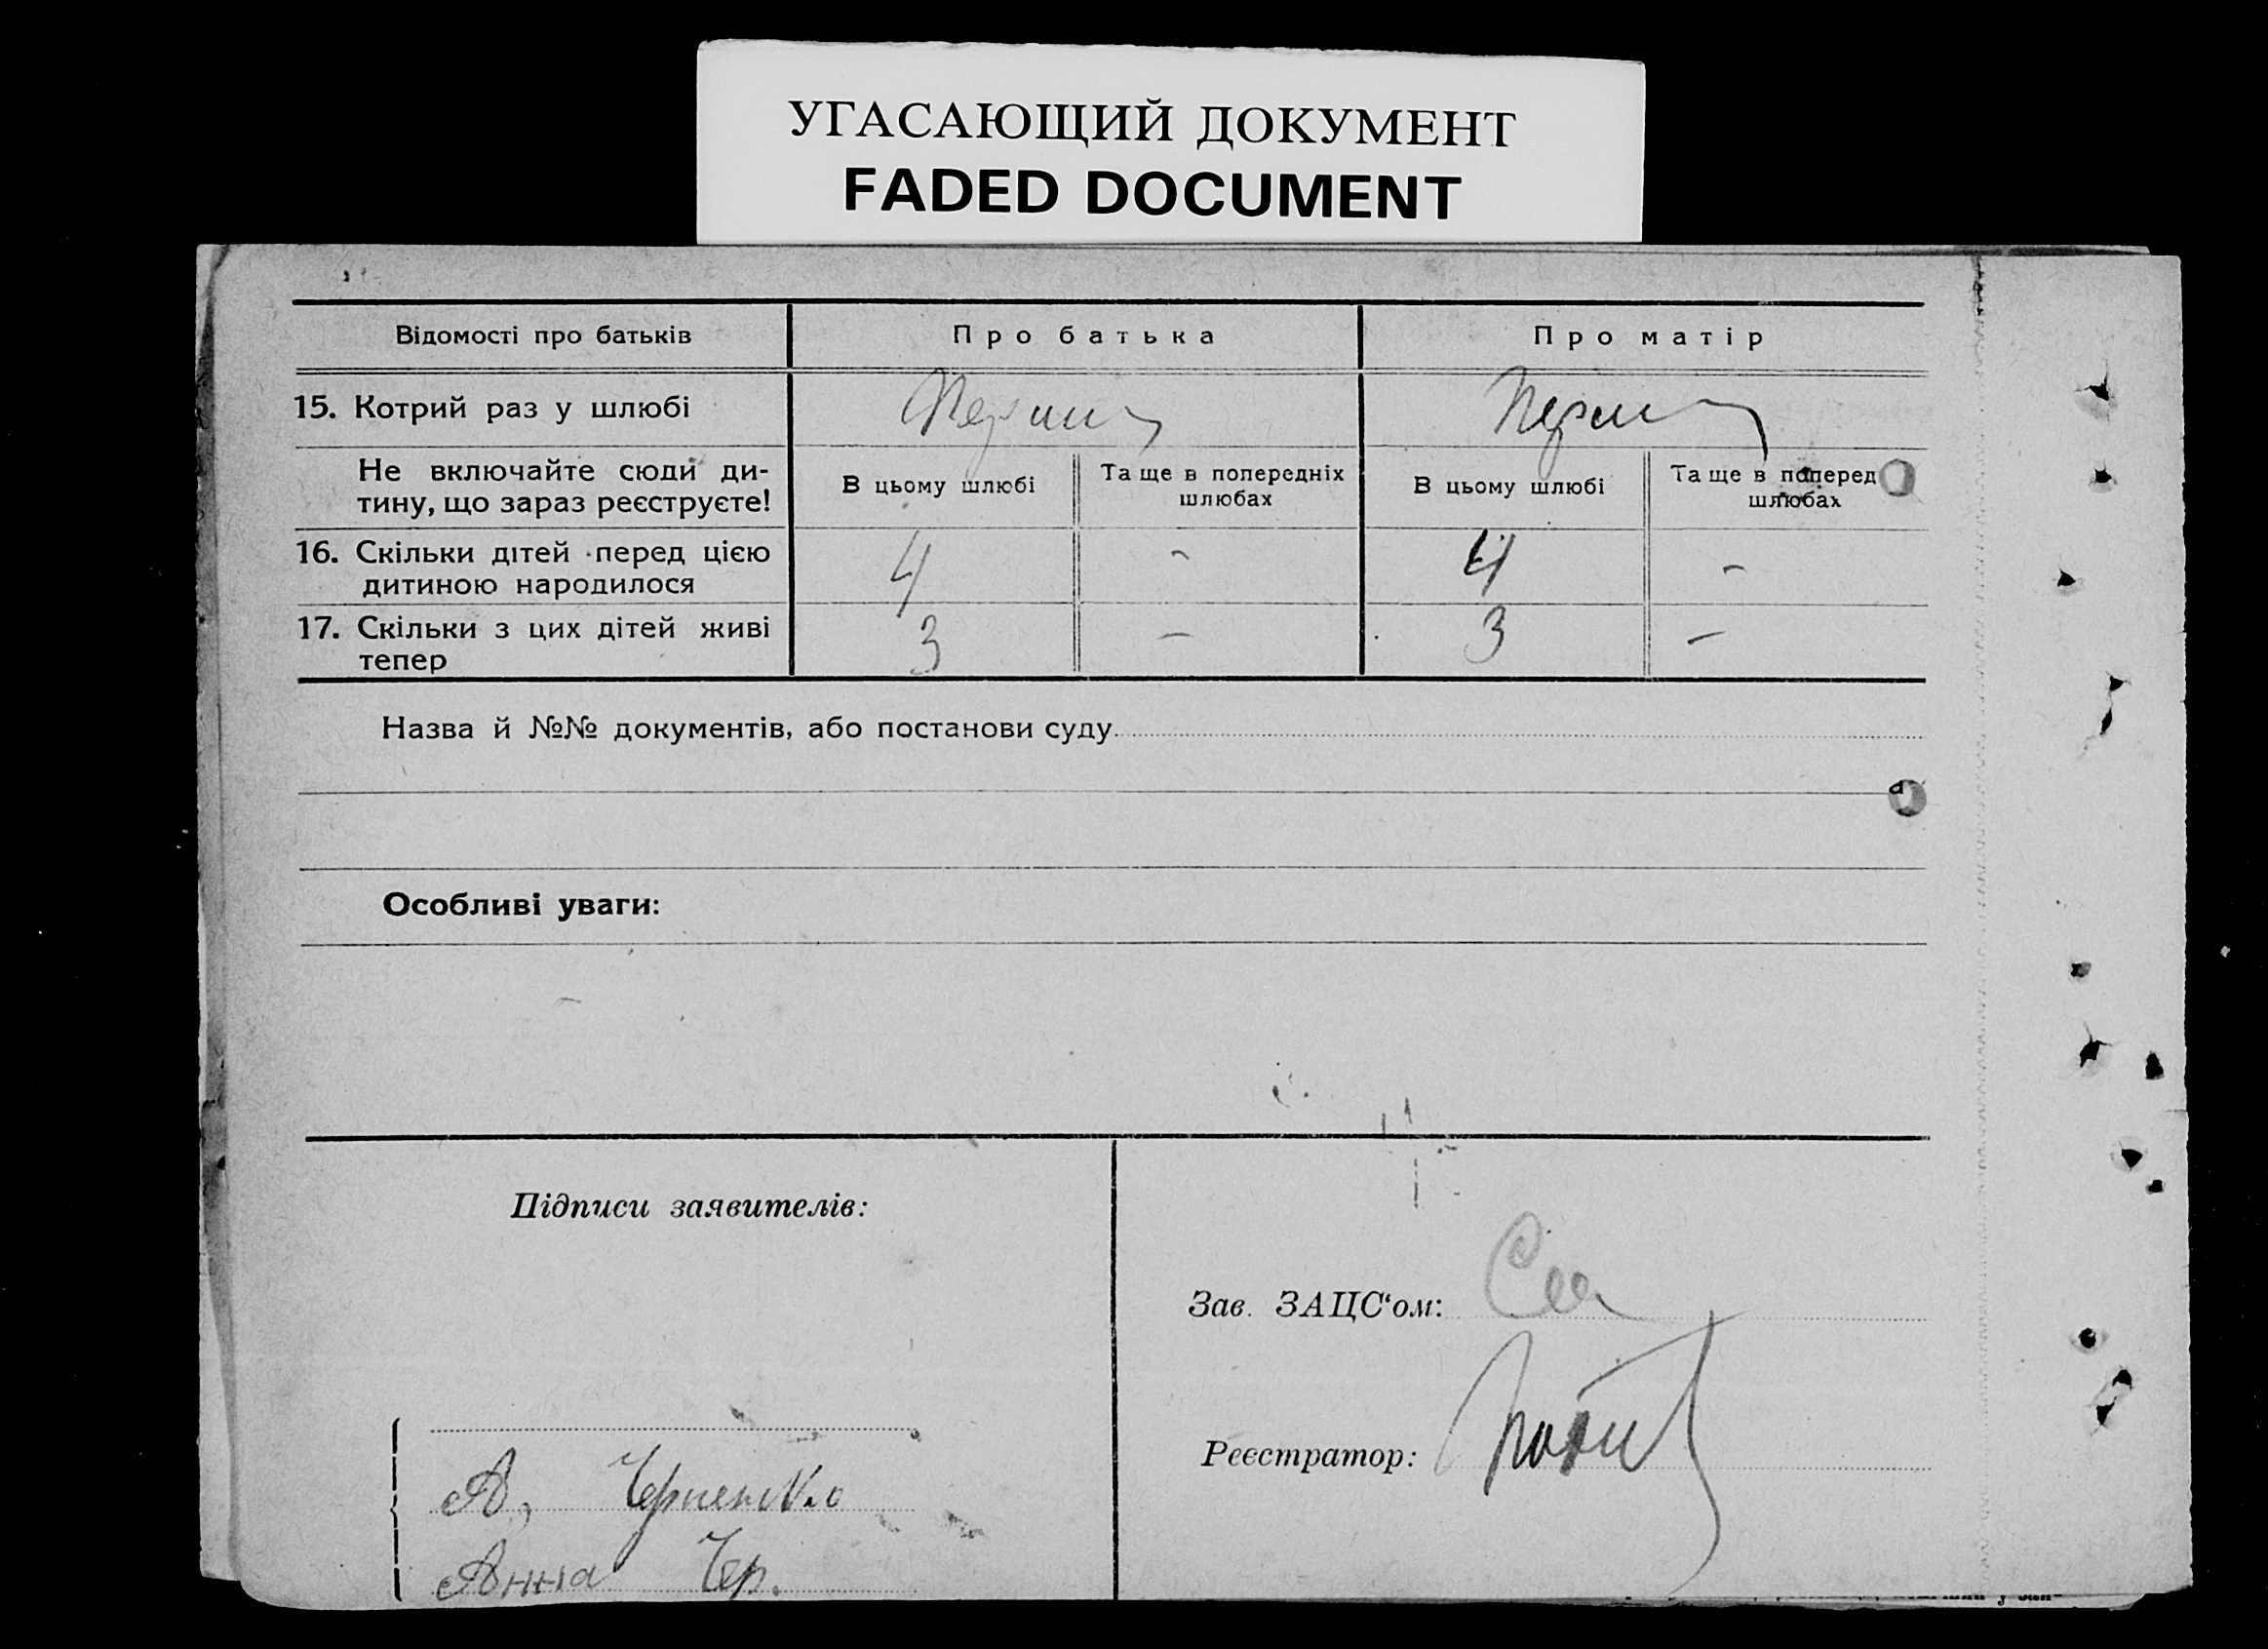 УГАСАЮЩИЙ ДОКУМЕНТ
FADED DOCUMENT
Відомості про батьків
Про батька
Про матір
15. Котрий раз у шлюбі
Не включайте сюди ди-
тину, що зараз реєструєте!
В цьому шлюбі
Та ще в попередніх
шлюбах
В цьому шлюбі
Та ще в поперед
шлюбах
16. Скільки дітей перед цією
дитиною народилося
4
-
4
-
17. Скільки з цих дітей живі
тепер
3
-
3
-
Назва й №№ документів, або постанови суду
Особливі уваги:
Підписи заявителів:
Зав. ЗАЦС‘ом:
Реєстратор:
А, Черненко
Анна Чер.